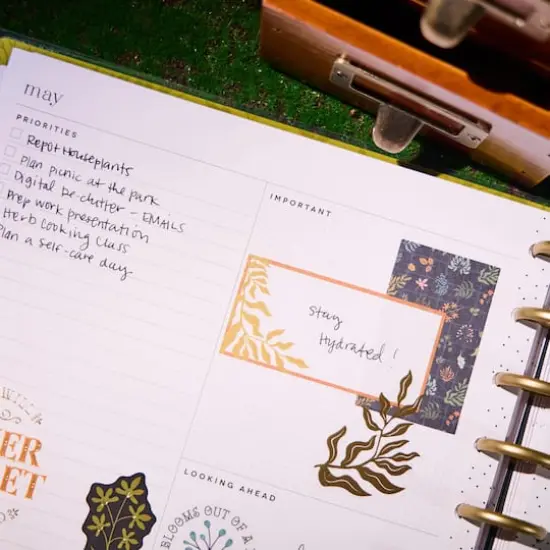 may
PRIORITIES
Repot Houseplants
Plan picnic at the park
Digital De-clutter - EMAILS
Prep work presentation
Herb Cooking Class
Plan a self-care day
IMPORTANT
Stay
Hydrated!
WILL
ER
ET
LOOKING AHEAD
BLOOMS OUT OF A